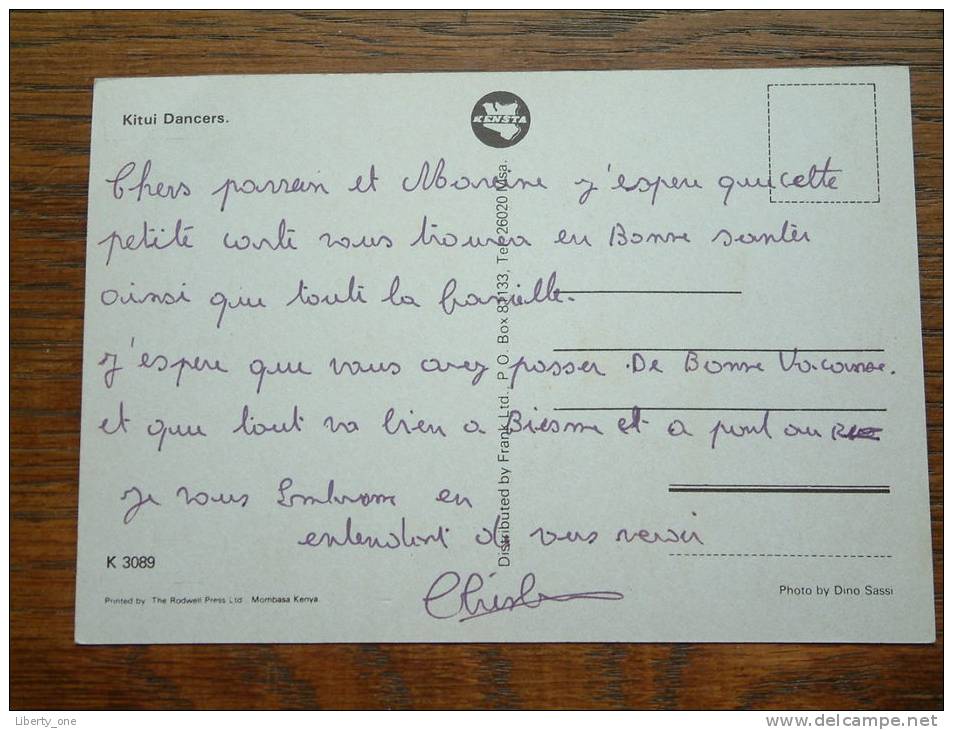 Kitui Dancers.
KENSTA
Chers parrain et Maraine j'espere que cette
petite carte vous trouvera en Bonne santér
ainsi que toute la famille.
j'espere que vous avez passer De Bonne Vacanse.
et que tout va bien a Biesme et a pont au
je vous Embrasse en
entendant de vous revoir
K 3089
Printed by The Rodwell Press Ltd. Mombasa Kenya.
Distributed by Frank Ltd., P.O. Box 81133, Tel. 26020 Msa.
Photo by Dino Sassi
Liberty_one
www.delcampe.net